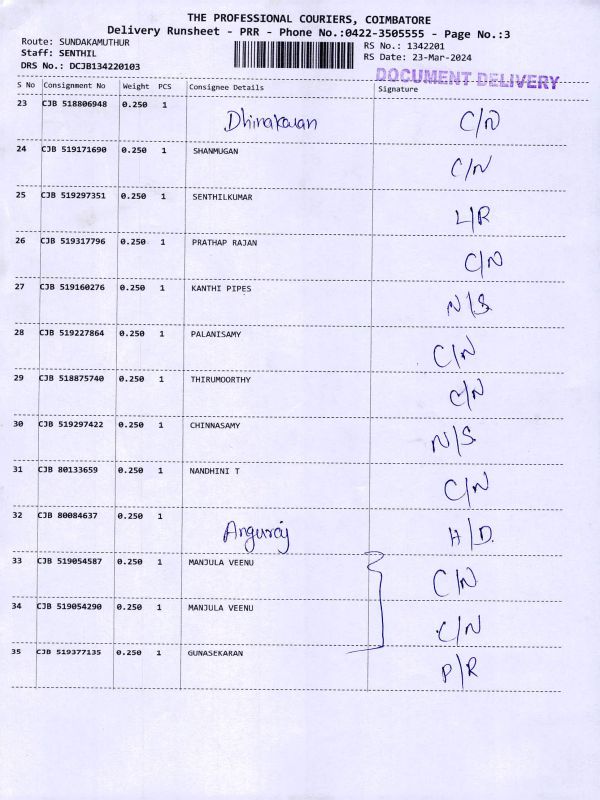 THE PROFESSIONAL COURIERS, COIMBATORE
Delivery Runsheet - PRR - Phone No.:0422-3505555 - Page No.:3
Route: SUNDAKAMUTHUR
RS No.: 1342201
Staff: SENTHIL
RS Date: 23-Mar-2024
DRS No.: DCJB134220103
DOCUMENT DELIVERY
S No Consignment No Weight PCS Consignee Details Signature
23 CJB 518806948 0.250 1 Dhinakaran C/N
24 CJB 519171690 0.250 1 SHANMUGAN C/N
25 CJB 519297351 0.250 1 SENTHILKUMAR L/R
26 CJB 519317796 0.250 1 PRATHAP RAJAN C/N
27 CJB 519160276 0.250 1 KANTHI PIPES N/S
28 CJB 519227864 0.250 1 PALANISAMY C/N
29 CJB 518875740 0.250 1 THIRUMOORTHY C/N
30 CJB 519297422 0.250 1 CHINNASAMY N/S
31 CJB 80133659 0.250 1 NANDHINI T C/N
32 CJB 80084637 0.250 1 Anguraj H/D
33 CJB 519054587 0.250 1 MANJULA VEENU C/N
34 CJB 519054290 0.250 1 MANJULA VEENU C/N
35 CJB 519377135 0.250 1 GUNASEKARAN P/R